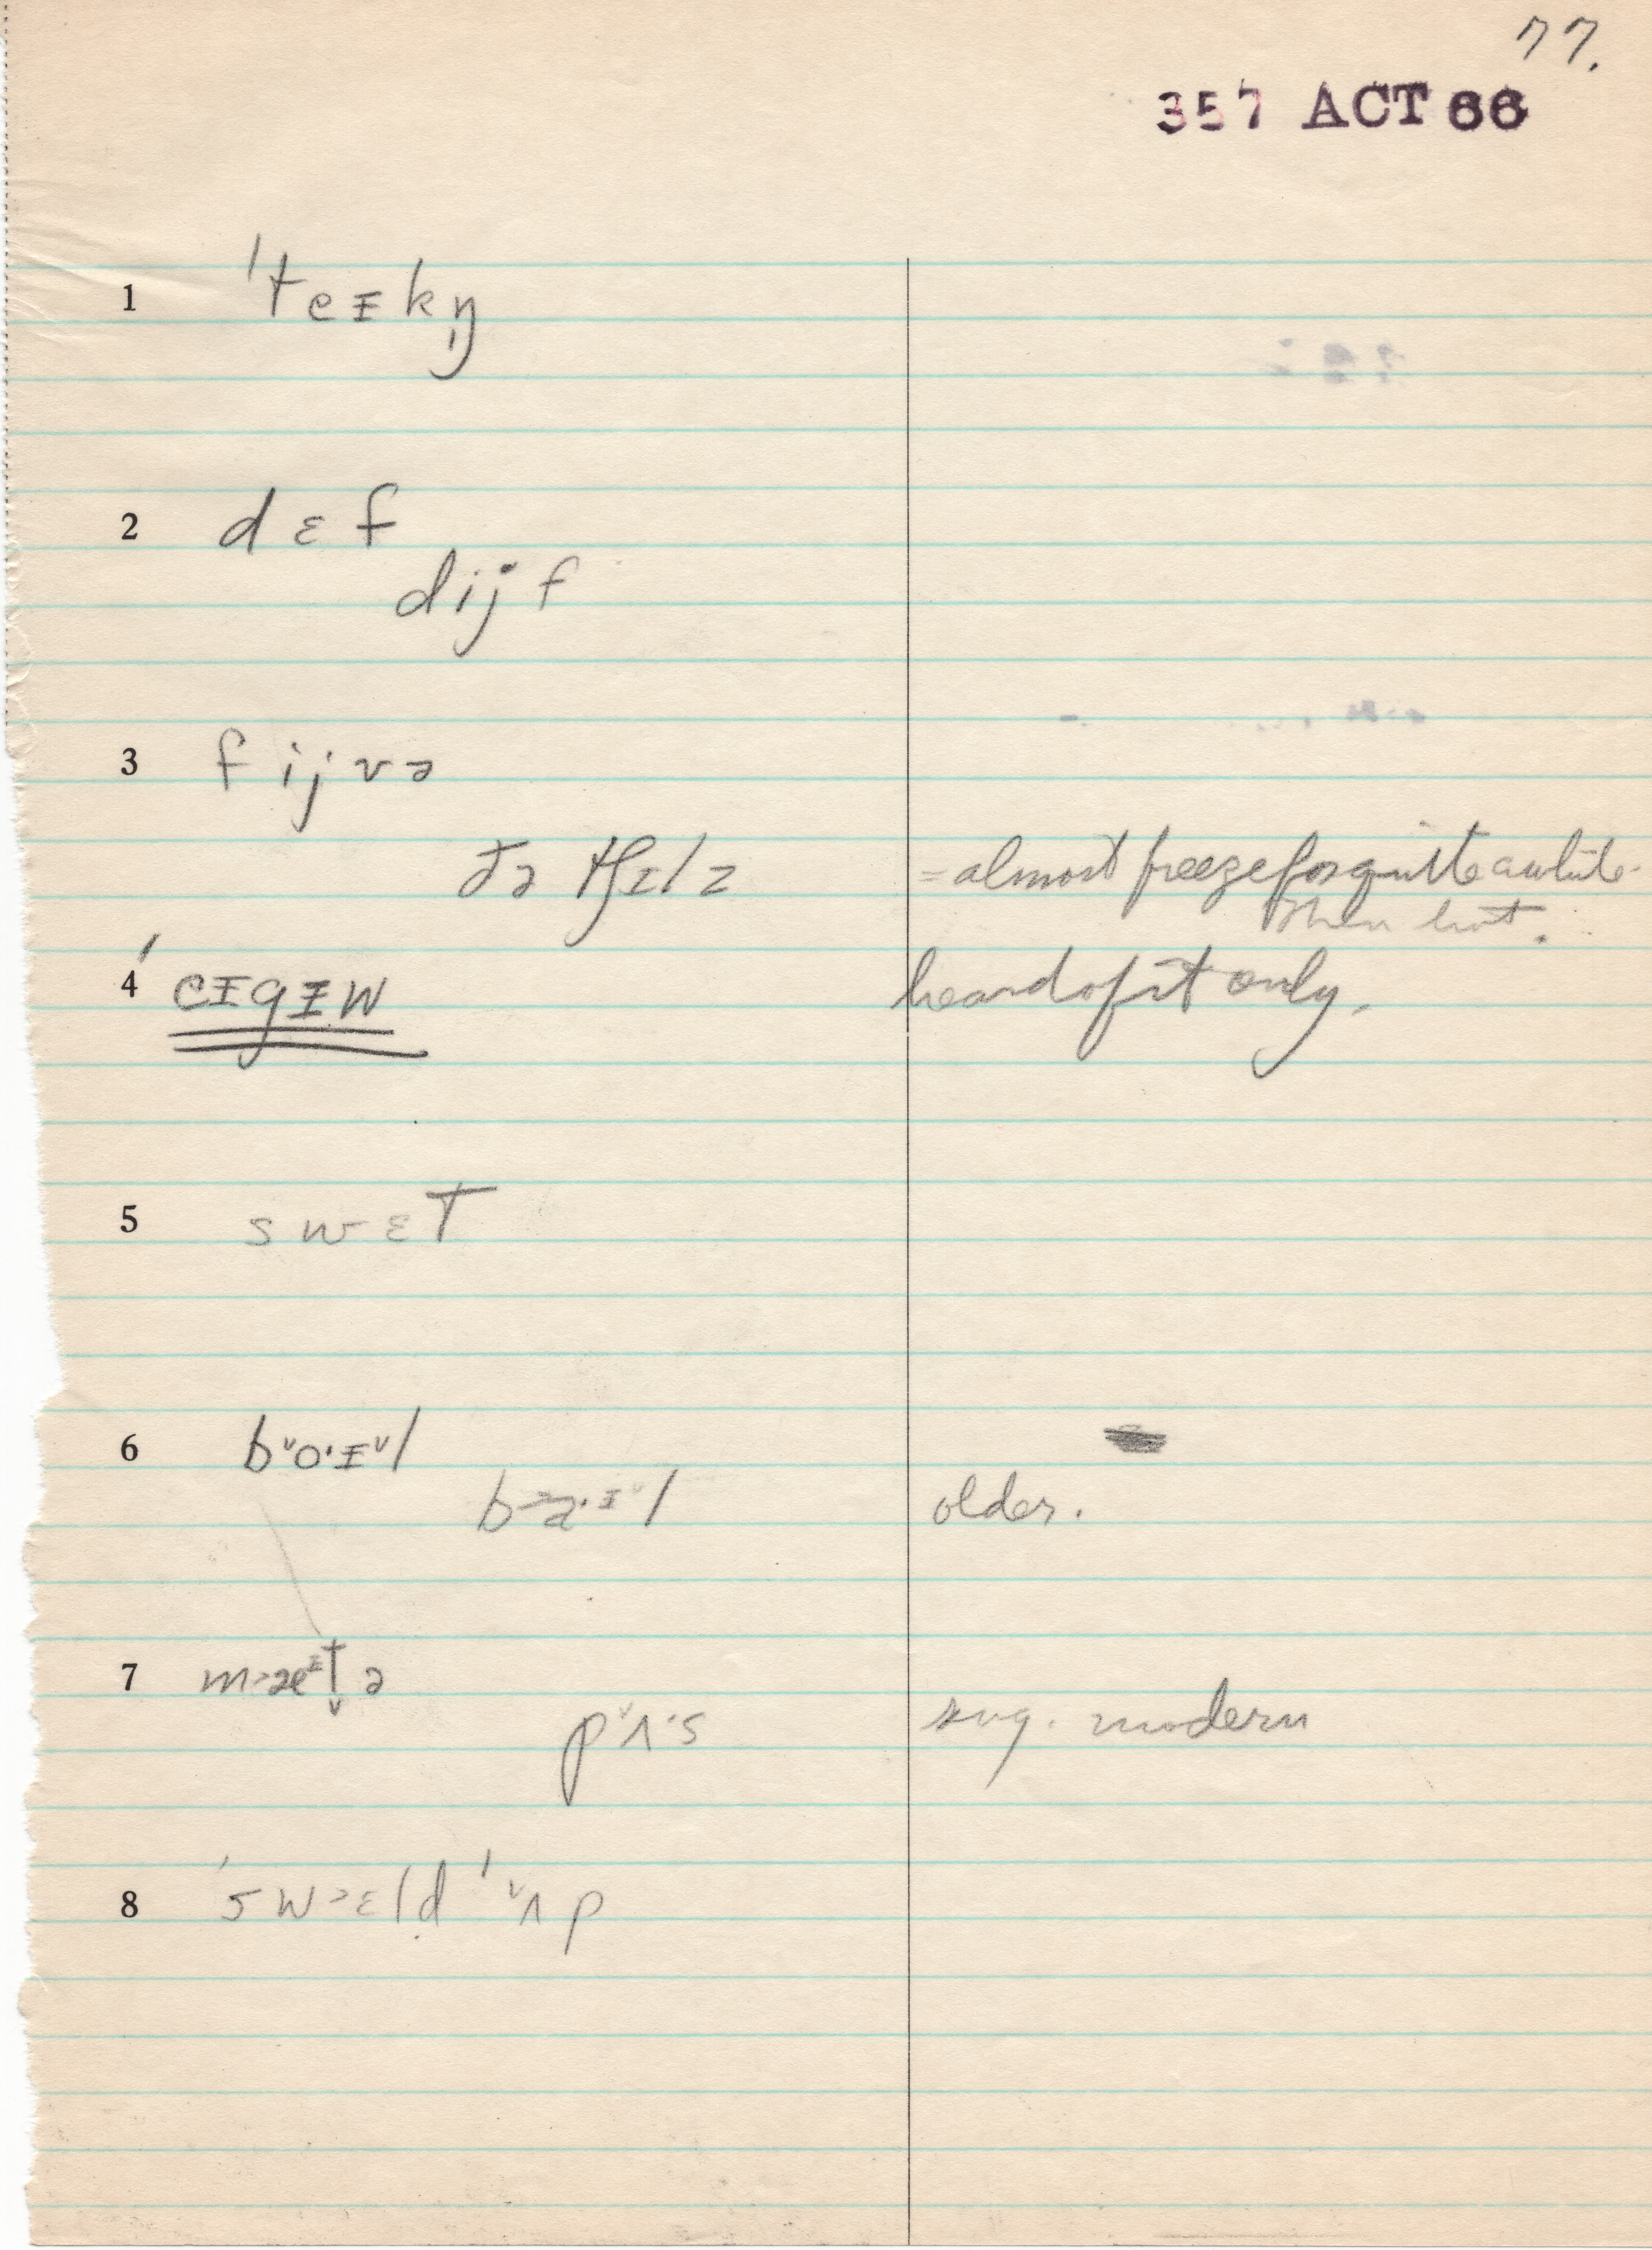 77.
357 ACT 66
1 ˈteɪkŋ̩
2 dɛf
dijf
3 fijvə
ðə tʃɪlz = almost freeze for quite a while.
Then hot.
4 ˈeɪgɪw heard of it only.
5 swɛT
6 b˅o·ɪ˅l
b˃ɑ·ɪ˅l older.
7 m˃æᵋt̬ə
p˅ʌ·s sug. modern
8 ˈsw˃ɛld ˈ˅ʌp